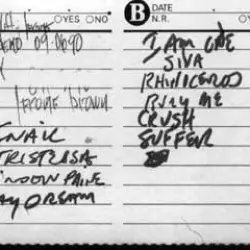 YES NO
brown
SNAIL
TRISTESSA
WINDOW PAINE
DAY DREAM
B DATE
N.R.
I AM ONE
SIVA
RHINOCEROS
BURY ME
CRUSH
SUFFER